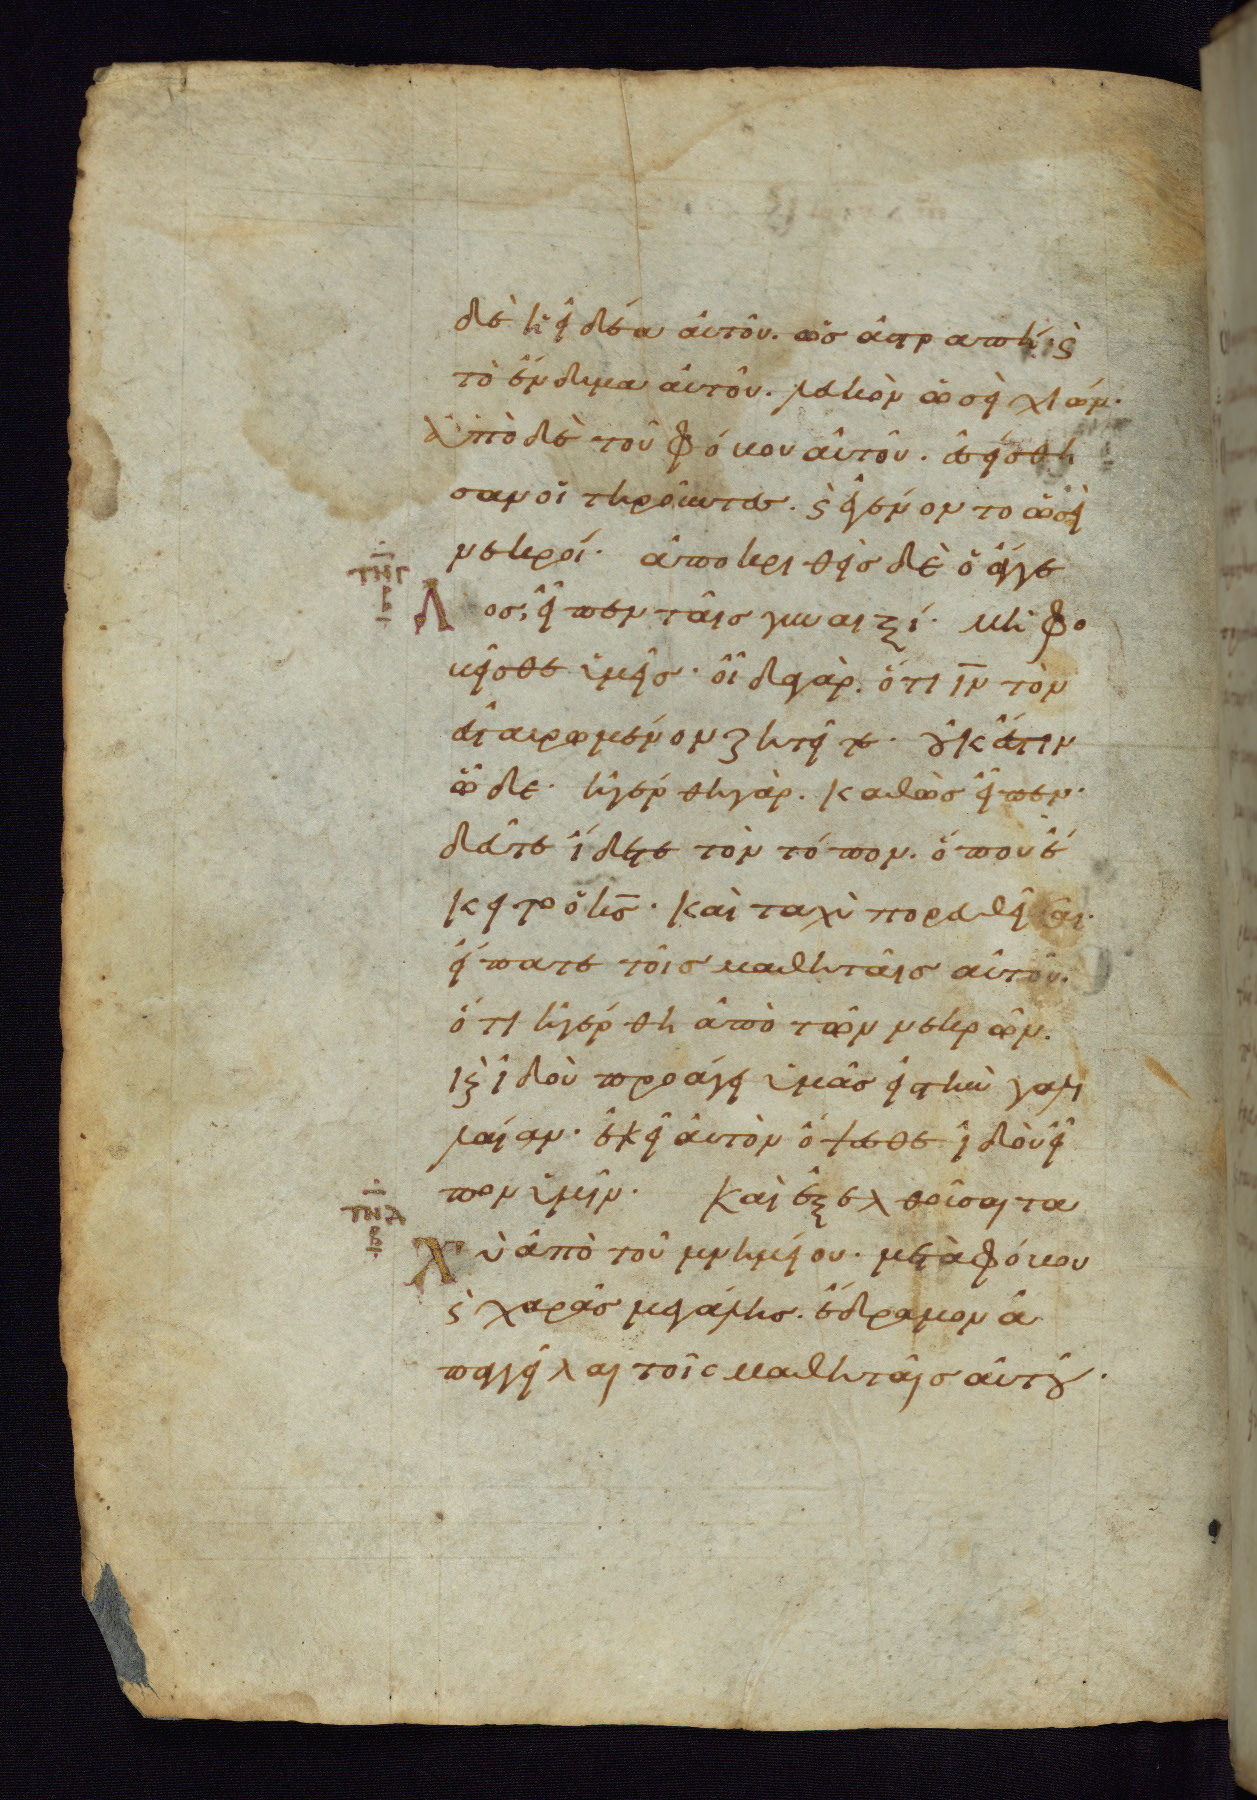 δὲ ἡ εἰδέα αὐτοῦ. ὡς ἀστραπὴ, ϗ
τὸ ἔνδυμα αὐτοῦ. λευκὸν ὡσεὶ χιών.
ἀπὸ δὲ τοῦ φόβου αὐτοῦ. ἐσείσθη
σαν οἱ τηροῦντες. ϗ ἐγένοντο ὡσεὶ
νεκροί. ἀποκριθεὶς δὲ ὁ ἄγγε
λος, εἶπεν ταῖς γυναιξί. μὴ φο
βεῖσθε ὑμεῖς. οἶδα γὰρ. ὅτι ι̅ν̅ τὸν
ἐσταυρωμένον ζητεῖτε. οὐκ ἔστιν
ὧδε. ἠγέρθη γὰρ. καθὼς εἶπεν.
δεῦτε ἴδετε τὸν τόπον. ὅπου ἔ
κειτο ὁ κ̅ς̅. καὶ ταχὺ πορευθεῖσαι.
εἴπατε τοῖς μαθηταῖς αὐτοῦ.
ὅτι ἠγέρθη ἀπὸ τῶν νεκρῶν.
κϗ ἰδοὺ προάγει ὑμᾶς εἰς τὴν γαλι
λαίαν. ἐκεῖ αὐτὸν ὄψεσθε ἰδοὺ εἶ
πον ὑμῖν. καὶ ἐξελθοῦσαι τα
χὺ ἀπὸ τοῦ μνημείου. μετὰ φόβου
ϗ χαρᾶς μεγάλης. ἔδραμον ἀ
παγγεῖλαι τοῖς μαθηταῖς αὐτοῦ.